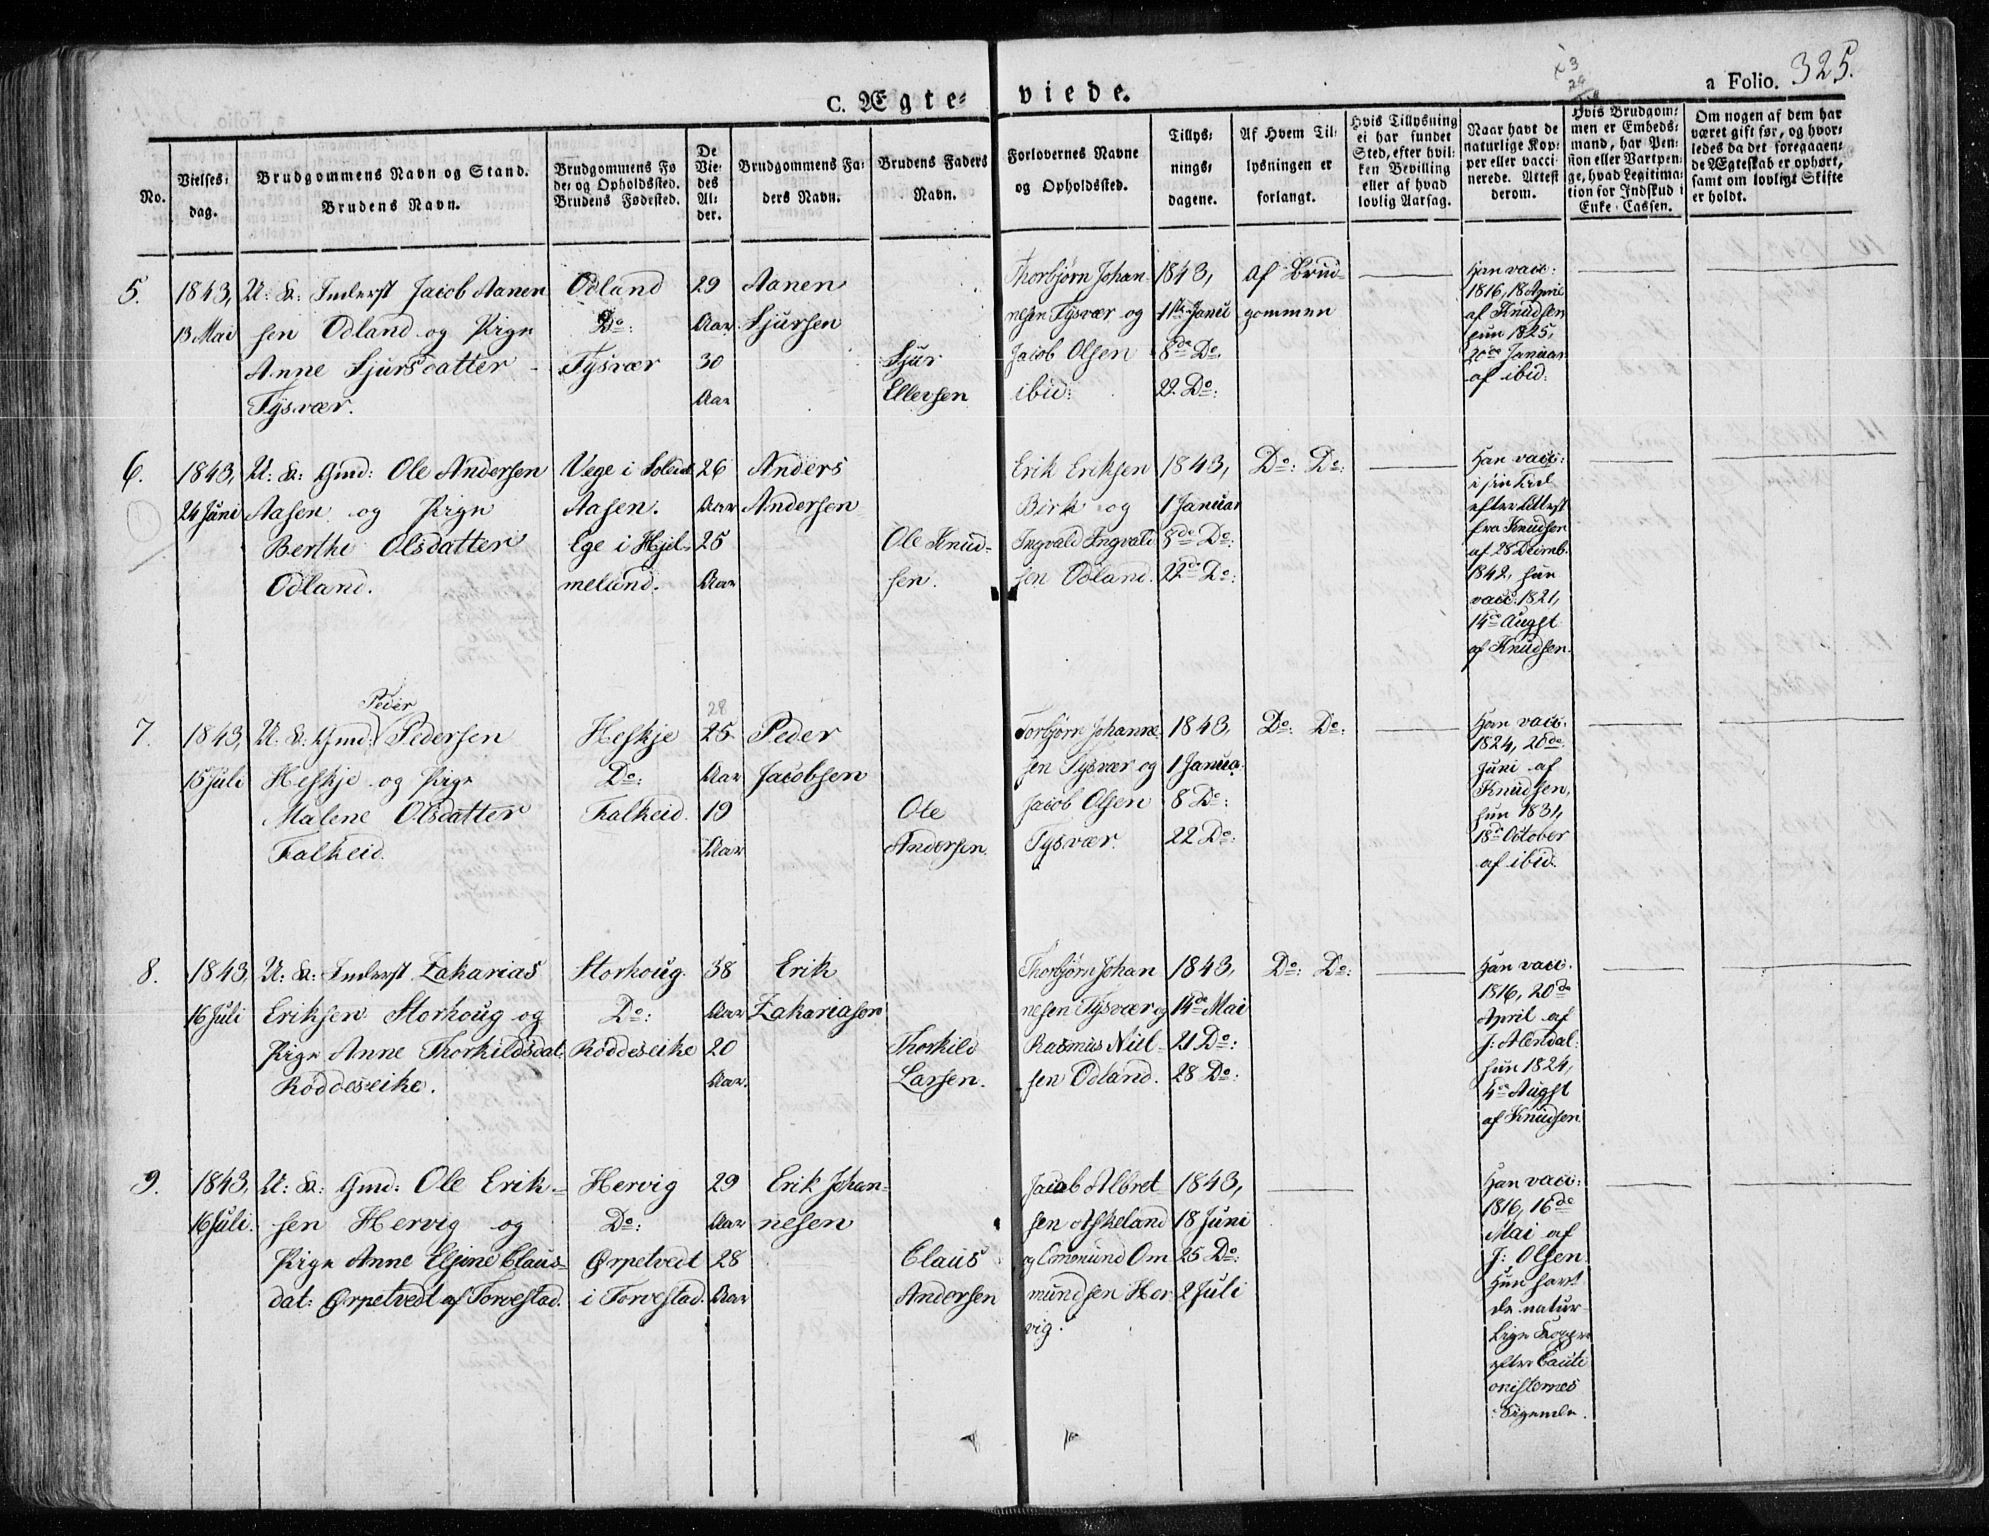 C. Ægte- viede.
a Folio. 325.
No.
Vielses-
dag.
Brudgommens Navn og Stand.
Brudens Navn.
Brudgommens Fø
de- og Opholdssted.
Brudens Fødested.
De
Vie-
des
Al-
der.
Brudgommens Fa-
ders Navn.
Brudens Faders
Navn.
Forlovernes Navne
og Opholdssted.
Tillys-
nings-
dagene.
Af Hvem Til-
lysningen er
forlangt.
Hvis Tillysning
ei har fundet
Sted, efter hvil-
ken Bevilling
eller af hvad
lovlig Aarsag.
Naar havt de
naturlige Kop-
per eller vacci-
nerede. Attest
derom.
Hvis Brudgom-
men er Embeds-
mand, har Pen-
sion eller Vartpen-
ge, hvad Legitima-
tion for Indskud i
Enke-Cassen.
Om nogen af dem har
været gift før, og hvor-
ledes da det foregaaen-
de Ægteskab er ophørt,
samt om lovligt Skifte
er holdt.
5.
1843,
13 Mai
U: K: Inderst Jacob Aanen
sen Odland og Pige
Anne Sjursdatter
Tysvær.
Odland
Do:
Tysvær
29
Aar
30
Aar
Aanen
Sjursen
Sjur
Ellersen
Thorbjørn Johan-
nesen Tysvær og
Jacob Olsen
ibid:
1843,
1ste Janu
8de Do.
22. Do:
af Brud-
gommen
Han vacc:
1816, 18 April
af Knudsen
hun 1825,
20de Januar
af ibid:
6.
1843,
24 Juni
U: K: Gmd: Ole Andersen
Aasen og Pige
Berthe Olsdatter
Odland.
Vege i
Aasen.
Ege i Hjel-
meland.
26
Aar
25
Aar
Anders
Andersen
Ole Knud-
sen.
Erik Eriksen
Birk og
Ingvald Ingvald
sen Odland.
1843,
1 Januar
8de Do:
22de Do:
Do: Do:
Han vacc:
i sin Tid
efter Attest
fra Knudsen
af 28 Decemb.
1842, hun
vacc: 1821,
14de Augst
af Knudsen.
7.
1843,
15 Juli
Peder
U: K: Gmd: Pedersen
Heskje og Pige
Malene Olsdatter
Falkeid.
Heskje
Do:
Falkeid.
28
25
Aar
19
Aar
Peder
Jacobsen
Ole
Andersen.
Torbjørn Johanne
sen Tysvær og
Jacob Olsen
Tysvær.
1843,
1 Janua.
8 Do:
22 Do:
Do: Do:
Han vacc.
1824, 20de
Juni af
Knudsen,
hun 1831,
18de October
af ibid.
8.
1843,
16 Juli
U: K: Inderst Zakarias
Eriksen Storhoug og
Pige Anne Thorkildsdat:
Røddeseike.
Storhoug.
Do:
Røddeseike
38
Aar
20
Aar.
Erik
Zakariasen
Thorkild
Larsen.
Thorbjørn Johan
nesen Tysvær og
Rasmus Niel-
sen Odland.
1843,
14de Mai
21 Do:
28 Do:
Do: Do:
Han vacc.
1816, 20de
April af
J: Alendal.
hun 1824,
4de Augst
af Knudsen
9.
1843,
16 Juli.
U: K: Gmd: Ole Erik-
sen Hervig og
Pige Anne Elsine Claus-
dat: Ørpetvedt af Torvestad.
Hervig
Do:
Ørpetvedt
i Torvestad.
29
Aar
28
Aar
Erik Johan-
nesen
Claus
Andersen
Jacob Albret
sen Askeland
og Omund Om
mundsen Her
vig.
1843,
18 Juni
25 Do:
2 Juli
Han vacc:
1816, 16de
Mai af
J: Olsen.
Hun havt
de natur-
lige Kopper
efter Cauti
onisternes
Sigende.